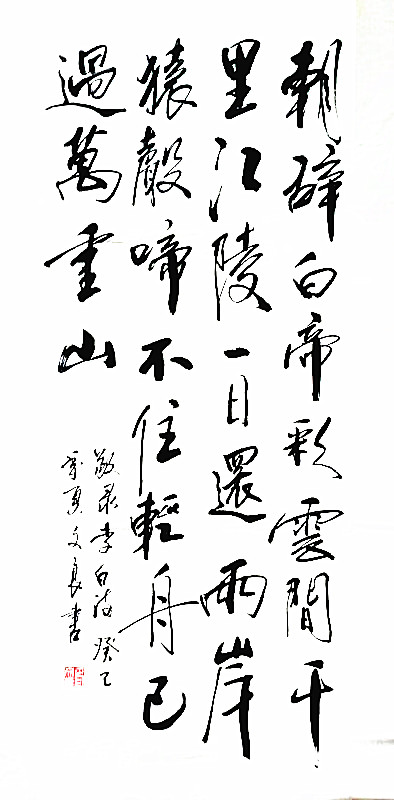 朝辭白帝彩雲間千
里江陵一日還兩岸
猿聲啼不住輕舟已
過萬重山
敬录李白诗 癸巳
夏文良書